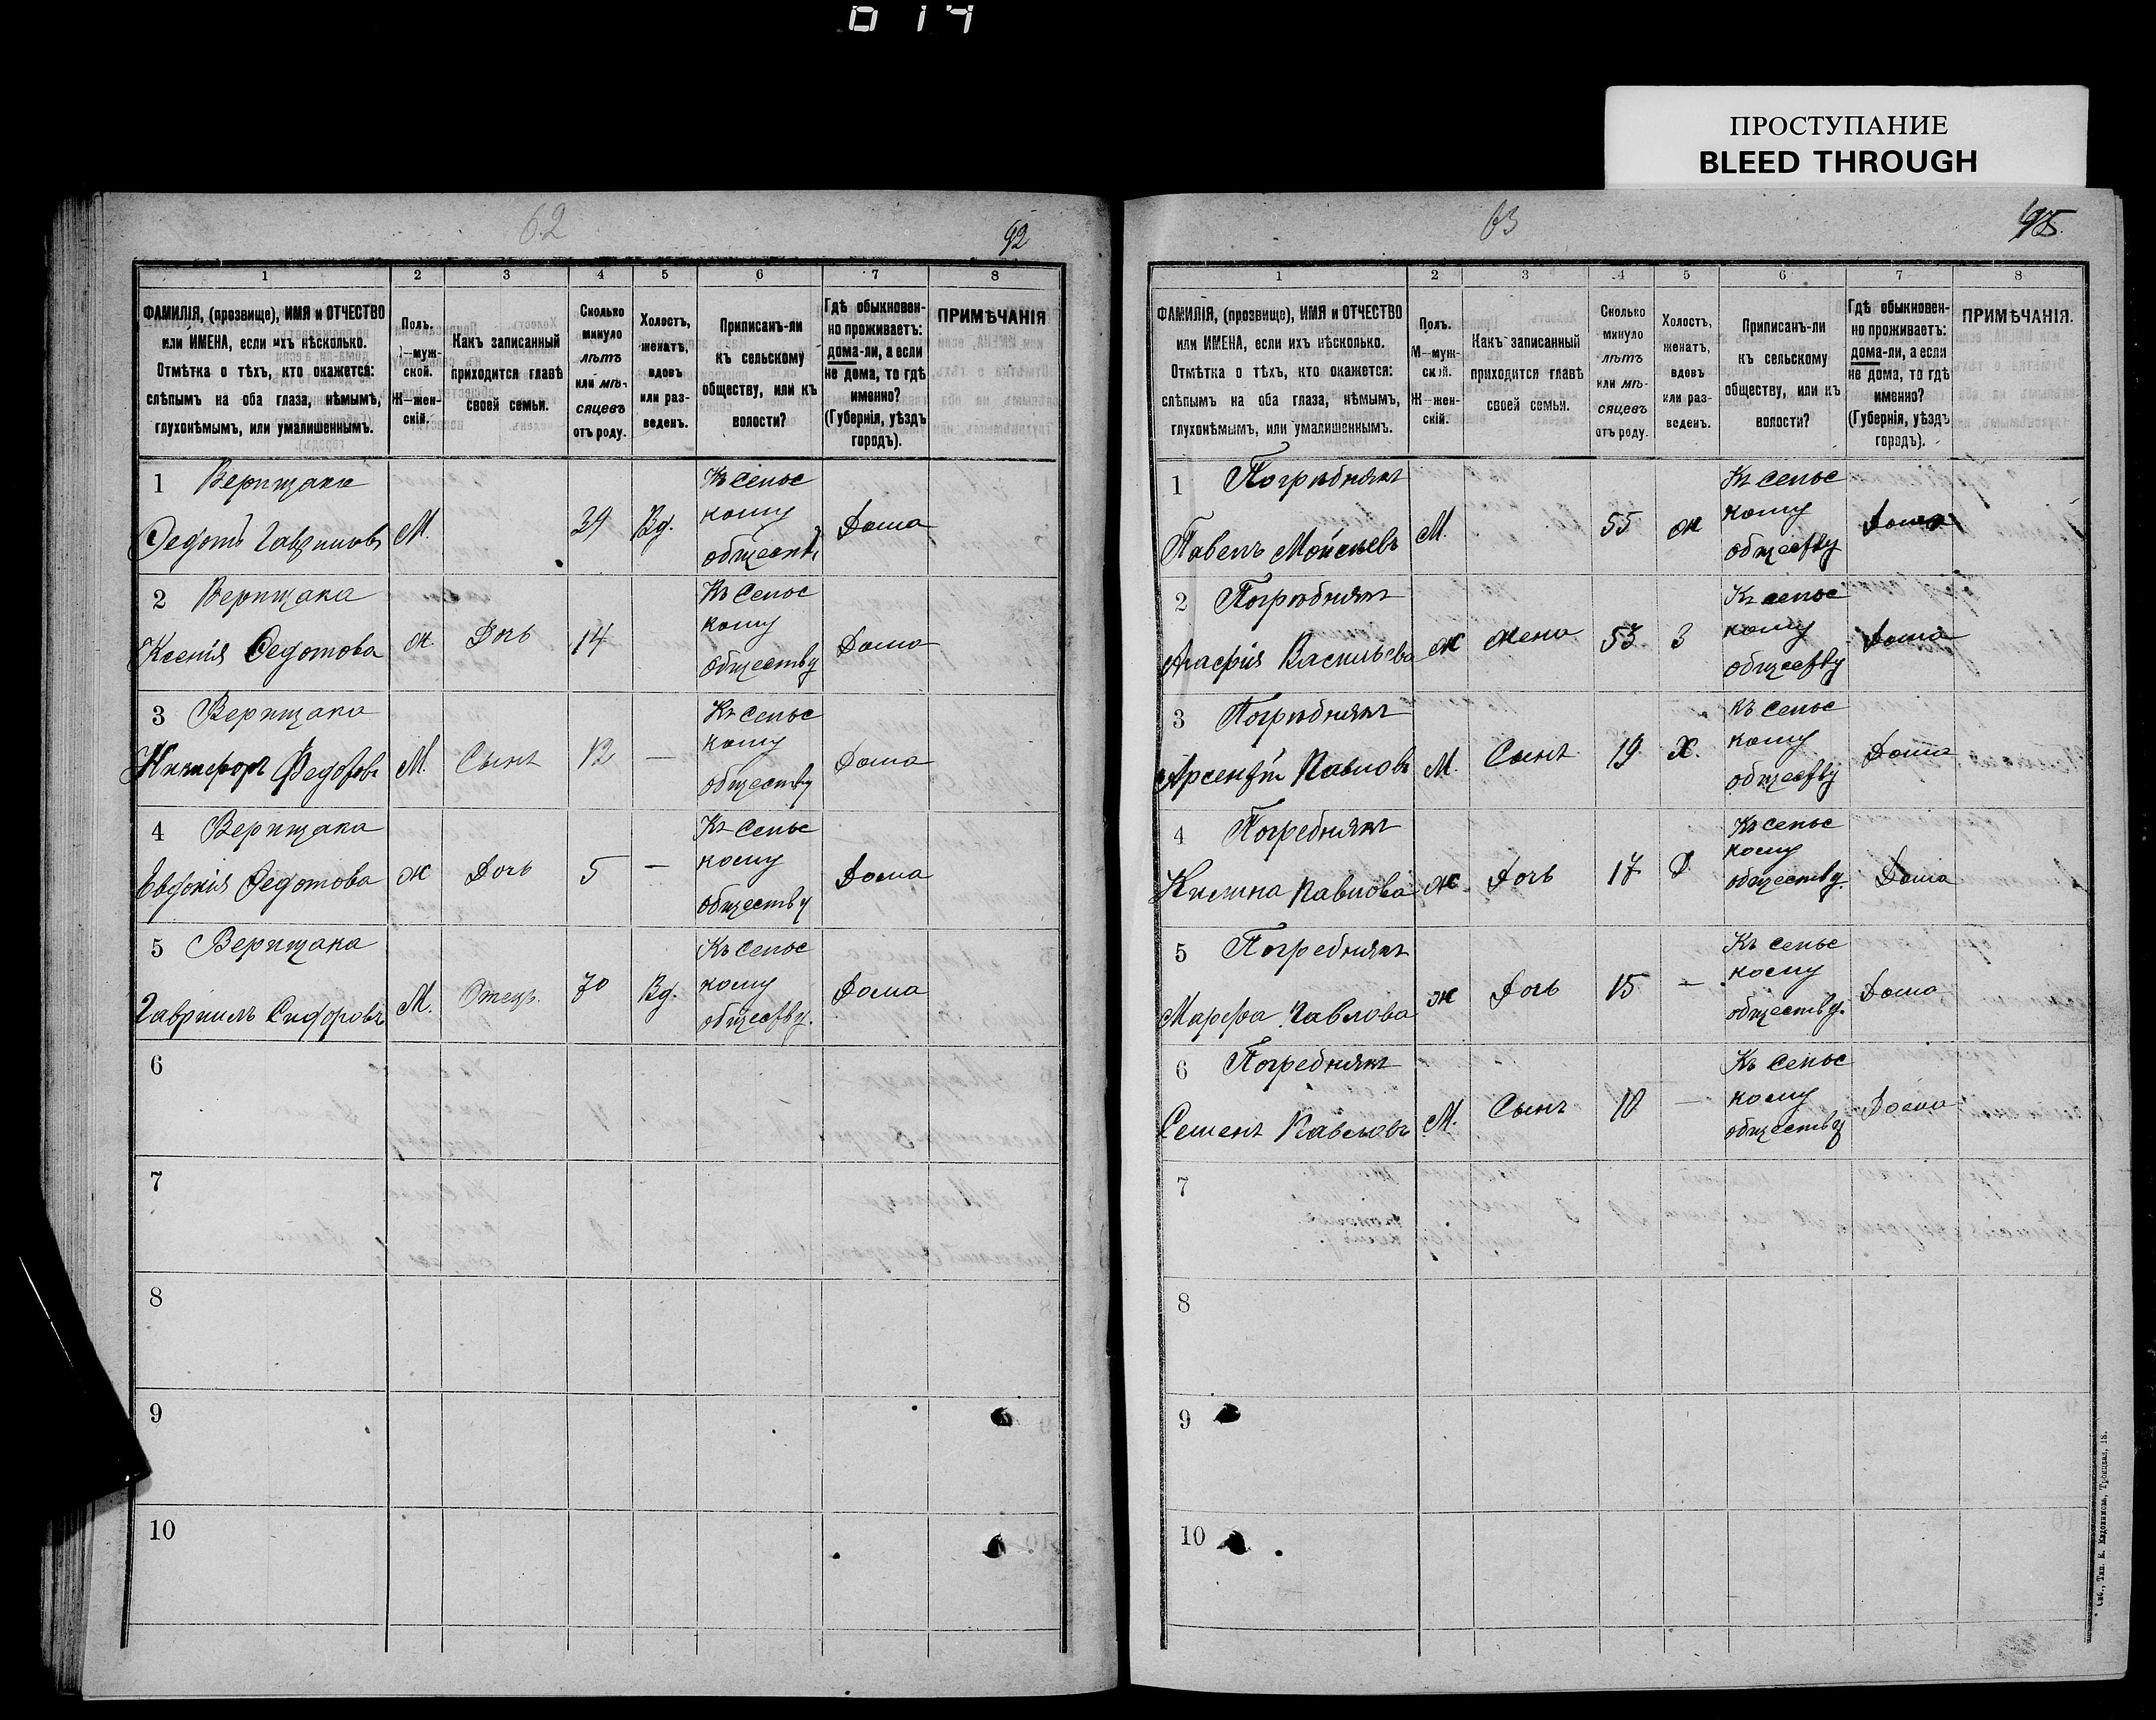 0 14
ПРОСТУПАНИЕ
BLEED THROUGH
62
92
1 2 3 4 5 6 7 8
ФАМИЛІЯ, (прозвище), ИМЯ и ОТЧЕСТВО
или ИМЕНА, если ихъ нѣсколько.
Отмѣтка о тѣхъ, кто окажется:
слѣпымъ на оба глаза, нѣмымъ,
глухонѣмымъ, или умалишеннымъ.
Полъ.
М—муж-
ской.
Ж—жен-
скій.
Какъ записанный
приходится главѣ
своей семьи.
Сколько
минуло
лѣтъ
или мѣ-
сяцевъ
отъ роду.
Холостъ,
женатъ,
вдовъ
или раз-
веденъ.
Приписанъ-ли
къ сельскому
обществу, или къ
волости?
Гдѣ обыкновен-
но проживаетъ:
дома-ли, а если
не дома, то гдѣ
именно?
(Губернія, уѣздъ
городъ).
ПРИМѢЧАНІЯ
1 Верищака
Федотъ Гавриловъ М. 39 Вд. Къ сельс
кому
обществу Дома
2 Верищака
Ксенія Федотова ж. Дочь 14 Къ сельс
кому
обществу Дома
3 Верищака
Никифоръ Федотовъ М. Сынъ 12 — Къ сельс
кому
обществу Дома
4 Верищака
Евдокія Федотова ж Дочь 5 — Къ сельс
кому
обществу Дома
5 Верищака
Гавріилъ Сидоровъ М. Отецъ. 70 Вд. Къ сельс
кому
обществу. Дома
6
7
8
9
10
63
1 2 3 4 5 6 7 8
ФАМИЛІЯ, (прозвище), ИМЯ и ОТЧЕСТВО
или ИМЕНА, если ихъ нѣсколько.
Отмѣтка о тѣхъ, кто окажется:
слѣпымъ на оба глаза, нѣмымъ,
глухонѣмымъ, или умалишеннымъ.
Полъ.
М—муж-
ской.
Ж—жен-
скій.
Какъ записанный
приходится главѣ
своей семьи.
Сколько
минуло
лѣтъ
или мѣ-
сяцевъ
отъ роду.
Холостъ,
женатъ,
вдовъ
или раз-
веденъ.
Приписанъ-ли
къ сельскому
обществу, или къ
волости?
Гдѣ обыкновен-
но проживаетъ:
дома-ли, а если
не дома, то гдѣ
именно?
(Губернія, уѣздъ
городъ).
ПРИМѢЧАНІЯ.
1 Погрѣбнякъ
Павелъ Мойсѣевъ М. 55 ж Къ сельс
кому
обществу Дома
2 Погрѣбнякъ
Агафія Васильева ж жена 53 З Къ сельс
кому
обществу Дома
3 Погрѣбнякъ
Арсентій Павловъ М. Сынъ 19 Х. Къ сельс
кому
обществу Дома
4 Погребнякъ
Килина Павлова ж Дочь 17 Д Къ сельс
кому
обществу. Дома
5 Погребнякъ
Марфа Павлова ж Дочь 15 — Къ сельс
кому
обществу. Дома
6 Погребнякъ
Семенъ Павловъ М. Сынъ 10 — Къ сельс
кому
обществу Дома
7
8
9
10
Спб., Тип. Е. Евдокимова, Троицкая, 18.